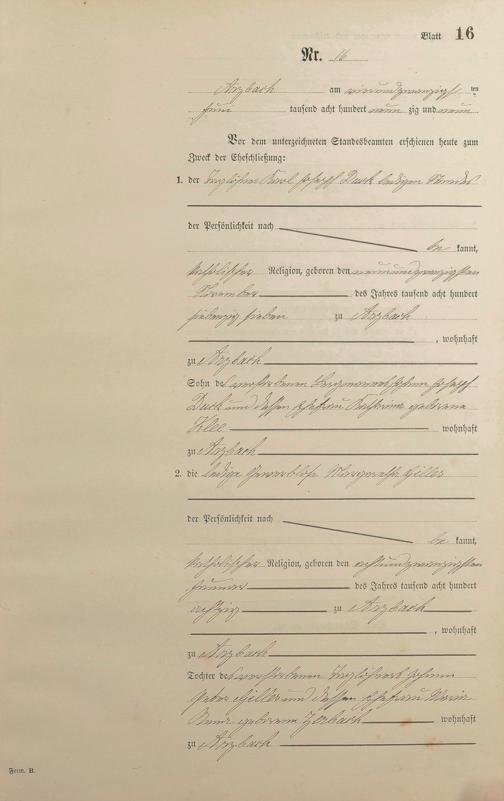 Blatt 16
Nr. 16
Arzbach am vierundzwanzigsten
Juni tausend acht hundert neun zig und neun
Vor dem unterzeichneten Standesbeamten erschienen heute zum
Zweck der Eheschließung:
1. der Taglöhner Karl Joseph Duck ledigen Standes
der Persönlichkeit nach
be kannt,
katholischer Religion, geboren den neunundzwanzigsten
November des Jahres tausend acht hundert
siebenzig sieben zu Arzbach
, wohnhaft
zu Arzbach
Sohn des verstorbenen Joseph
Duck und dessen Ehefrau Katharina geborene
Klee wohnhaft
zu Arzbach
2. die ledige gewerblose Margaretha Giller
der Persönlichkeit nach
be kannt,
katholischer Religion, geboren den achtundzwanzigsten
Januar des Jahres tausend acht hundert
achtzig zu Arzbach
, wohnhaft
zu Arzbach
Tochter des verstorbenen Taglöhners Johann
Peter Giller und dessen Ehefrau Maria
Anna geborene Zerbach wohnhaft
zu Arzbach
Form. B.